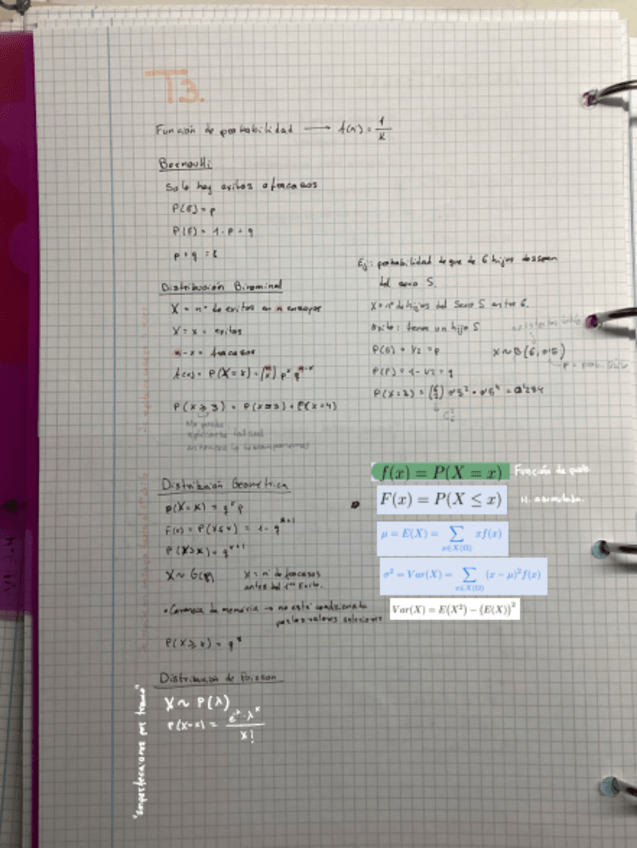 T3.
Función de probabilidad → f(x) = 1/k
Bernoulli
Solo hay exitos o fracasos
P(E) = p
P(F) = 1 - p = q
p + q = 1
Distribución Binominal
X = nº de exitos en n ensayos
X = x = exitos
n - x = fracasos
f(x) = P(X = x) = (n x) pˣ qⁿ⁻ˣ
P(X ≥ 3) =
Ej: probabilidad de que de 6 hijos dos sean
del sexo S.
X = nº de hijos del Sexo S entre 6.
exito: tener un hijo S
P(E) = 1/2 = p
X ~ B(6, 0'5)
P(F) = 1 - 1/2 = q
Distribución Geométrica
P(X = x) = qˣ p
F(x) = P(X ≤ x) = 1 - qˣ⁺¹
P(X > x) = qˣ⁺¹
X ~ G(p)
X = nº de fracasos
antes del 1er Exito.
• Carencia de memoria → no está condicionada
por los valores anteriores
P(X ≥ x) = qˣ
f(x) = P(X = x) Función de prob.
F(x) = P(X ≤ x) acumulada.
μ = E(X) = ∑ x∈X(Ω) xf(x)
σ² = Var(X) = ∑ x∈X(Ω) (x − μ)² f(x)
Var(X) = E(X²) − (E(X))²
Distribución de Poisson
"imperfecciones por tramo"
X ~ P(λ)
P(X=x) = e⁻λ · λˣ / x!